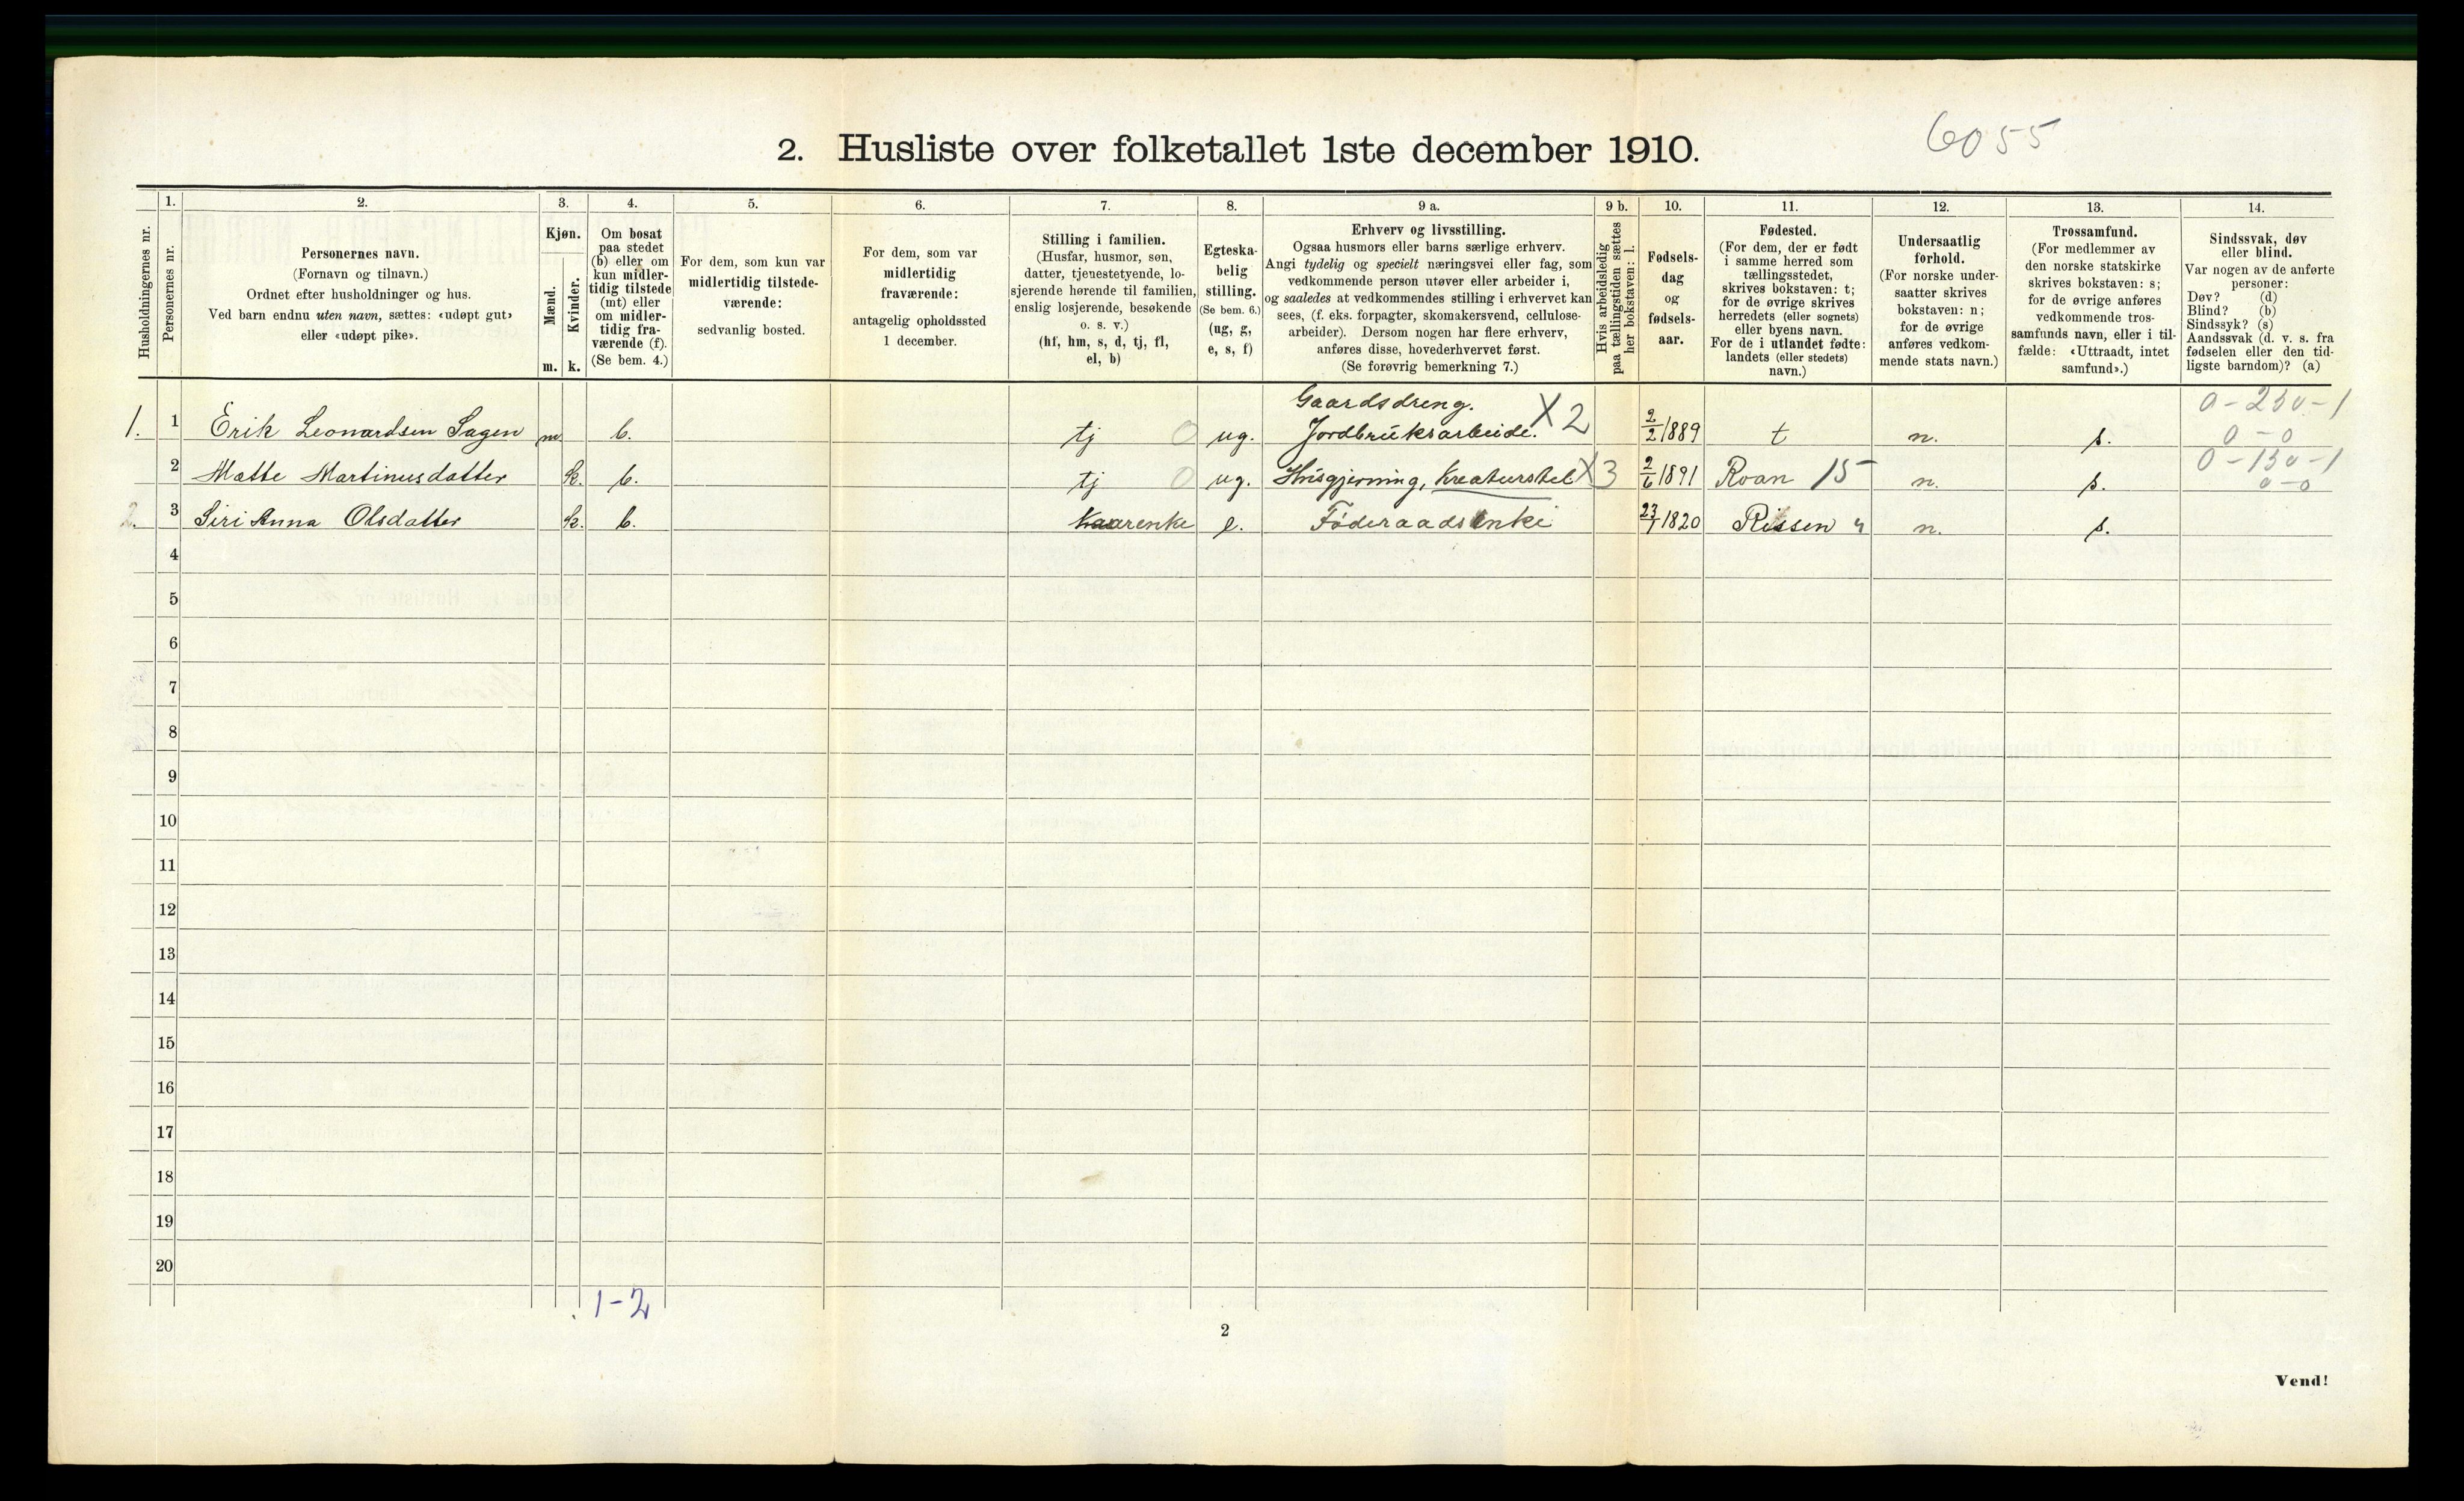 2. Husliste over folketallet 1ste december 1910.
6055
Husholdningernes nr.
1.
Personernes nr.
2.
Personernes navn.
(Fornavn og tilnavn.)
Ordnet efter husholdninger og hus.
Ved barn endnu uten navn, sættes: «udøpt gut»
eller «udøpt pike».
3.
Kjøn.
Mænd.
Kvinder.
m. k.
4.
Om bosat
paa stedet
(b) eller om
kun midler-
tidig tilstede
(mt) eller
om midler-
tidig fra-
værende (f).
(Se bem. 4.)
5.
For dem, som kun var
midlertidig tilstede-
værende:
sedvanlig bosted.
6.
For dem, som var
midlertidig
fraværende:
antagelig opholdssted
1 december.
7.
Stilling i familien.
(Husfar, husmor, søn,
datter, tjenestetyende, lo-
sjerende hørende til familien,
enslig losjerende, besøkende
o. s. v.)
(hf, hm, s, d, tj, fl,
el, b)
8.
Egteska-
belig
stilling.
(Se bem. 6.)
(ug, g,
e, s, f)
9 a.
Erhverv og livsstilling.
Ogsaa husmors eller barns særlige erhverv.
Angi tydelig og specielt næringsvei eller fag, som
vedkommende person utøver eller arbeider i,
og saaledes at vedkommendes stilling i erhvervet kan
sees, (f. eks. forpagter, skomakersvend, cellulose-
arbeider). Dersom nogen har flere erhverv,
anføres disse, hovederhvervet først.
(Se forøvrig bemerkning 7.)
9 b.
Hvis arbeidsledig
paa tællingstiden sættes
her bokstaven: l.
10.
Fødsels-
dag
og
fødsels-
aar.
11.
Fødested.
(For dem, der er født
i samme herred som
tællingsstedet,
skrives bokstaven: t;
for de øvrige skrives
herredets (eller sognets)
eller byens navn.
For de i utlandet fødte:
landets (eller stedets)
navn.)
12.
Undersaatlig
forhold.
(For norske under-
saatter skrives
bokstaven: n;
for de øvrige
anføres vedkom-
mende stats navn.)
13.
Trossamfund.
(For medlemmer av
den norske statskirke
skrives bokstaven: s;
for de øvrige anføres
vedkommende tros-
samfunds navn, eller i til-
fælde: «Uttraadt, intet
samfund».)
14.
Sindssvak, døv
eller blind.
Var nogen av de anførte
personer:
Døv? (d)
Blind? (b)
Sindssyk? (s)
Aandssvak (d. v. s. fra
fødselen eller den tid-
ligste barndom)? (a)
Gaardsdreng. X2 0-250-1
1. 1 Erik Leonardsen Sagen m b. tj 0 ug. Jordbruksarbeide. 2/2 1889 t n. s. 0-0
0-150-1
2 Mette Martinusdatter k. b. tj 0 ug. Husgjerning, Kreaturstel X3 2/6 1891 Roan 15 n. s. 0-0
2. 3 Siri Anna Olsdatter k. b. Kaarenke e. Føderaadsenke 23/1 1820 Rissen 4 n. s.
4
5
6
7
8
9
10
11
12
13
14
15
16
17
18
19
20
1-2
2
Vend!